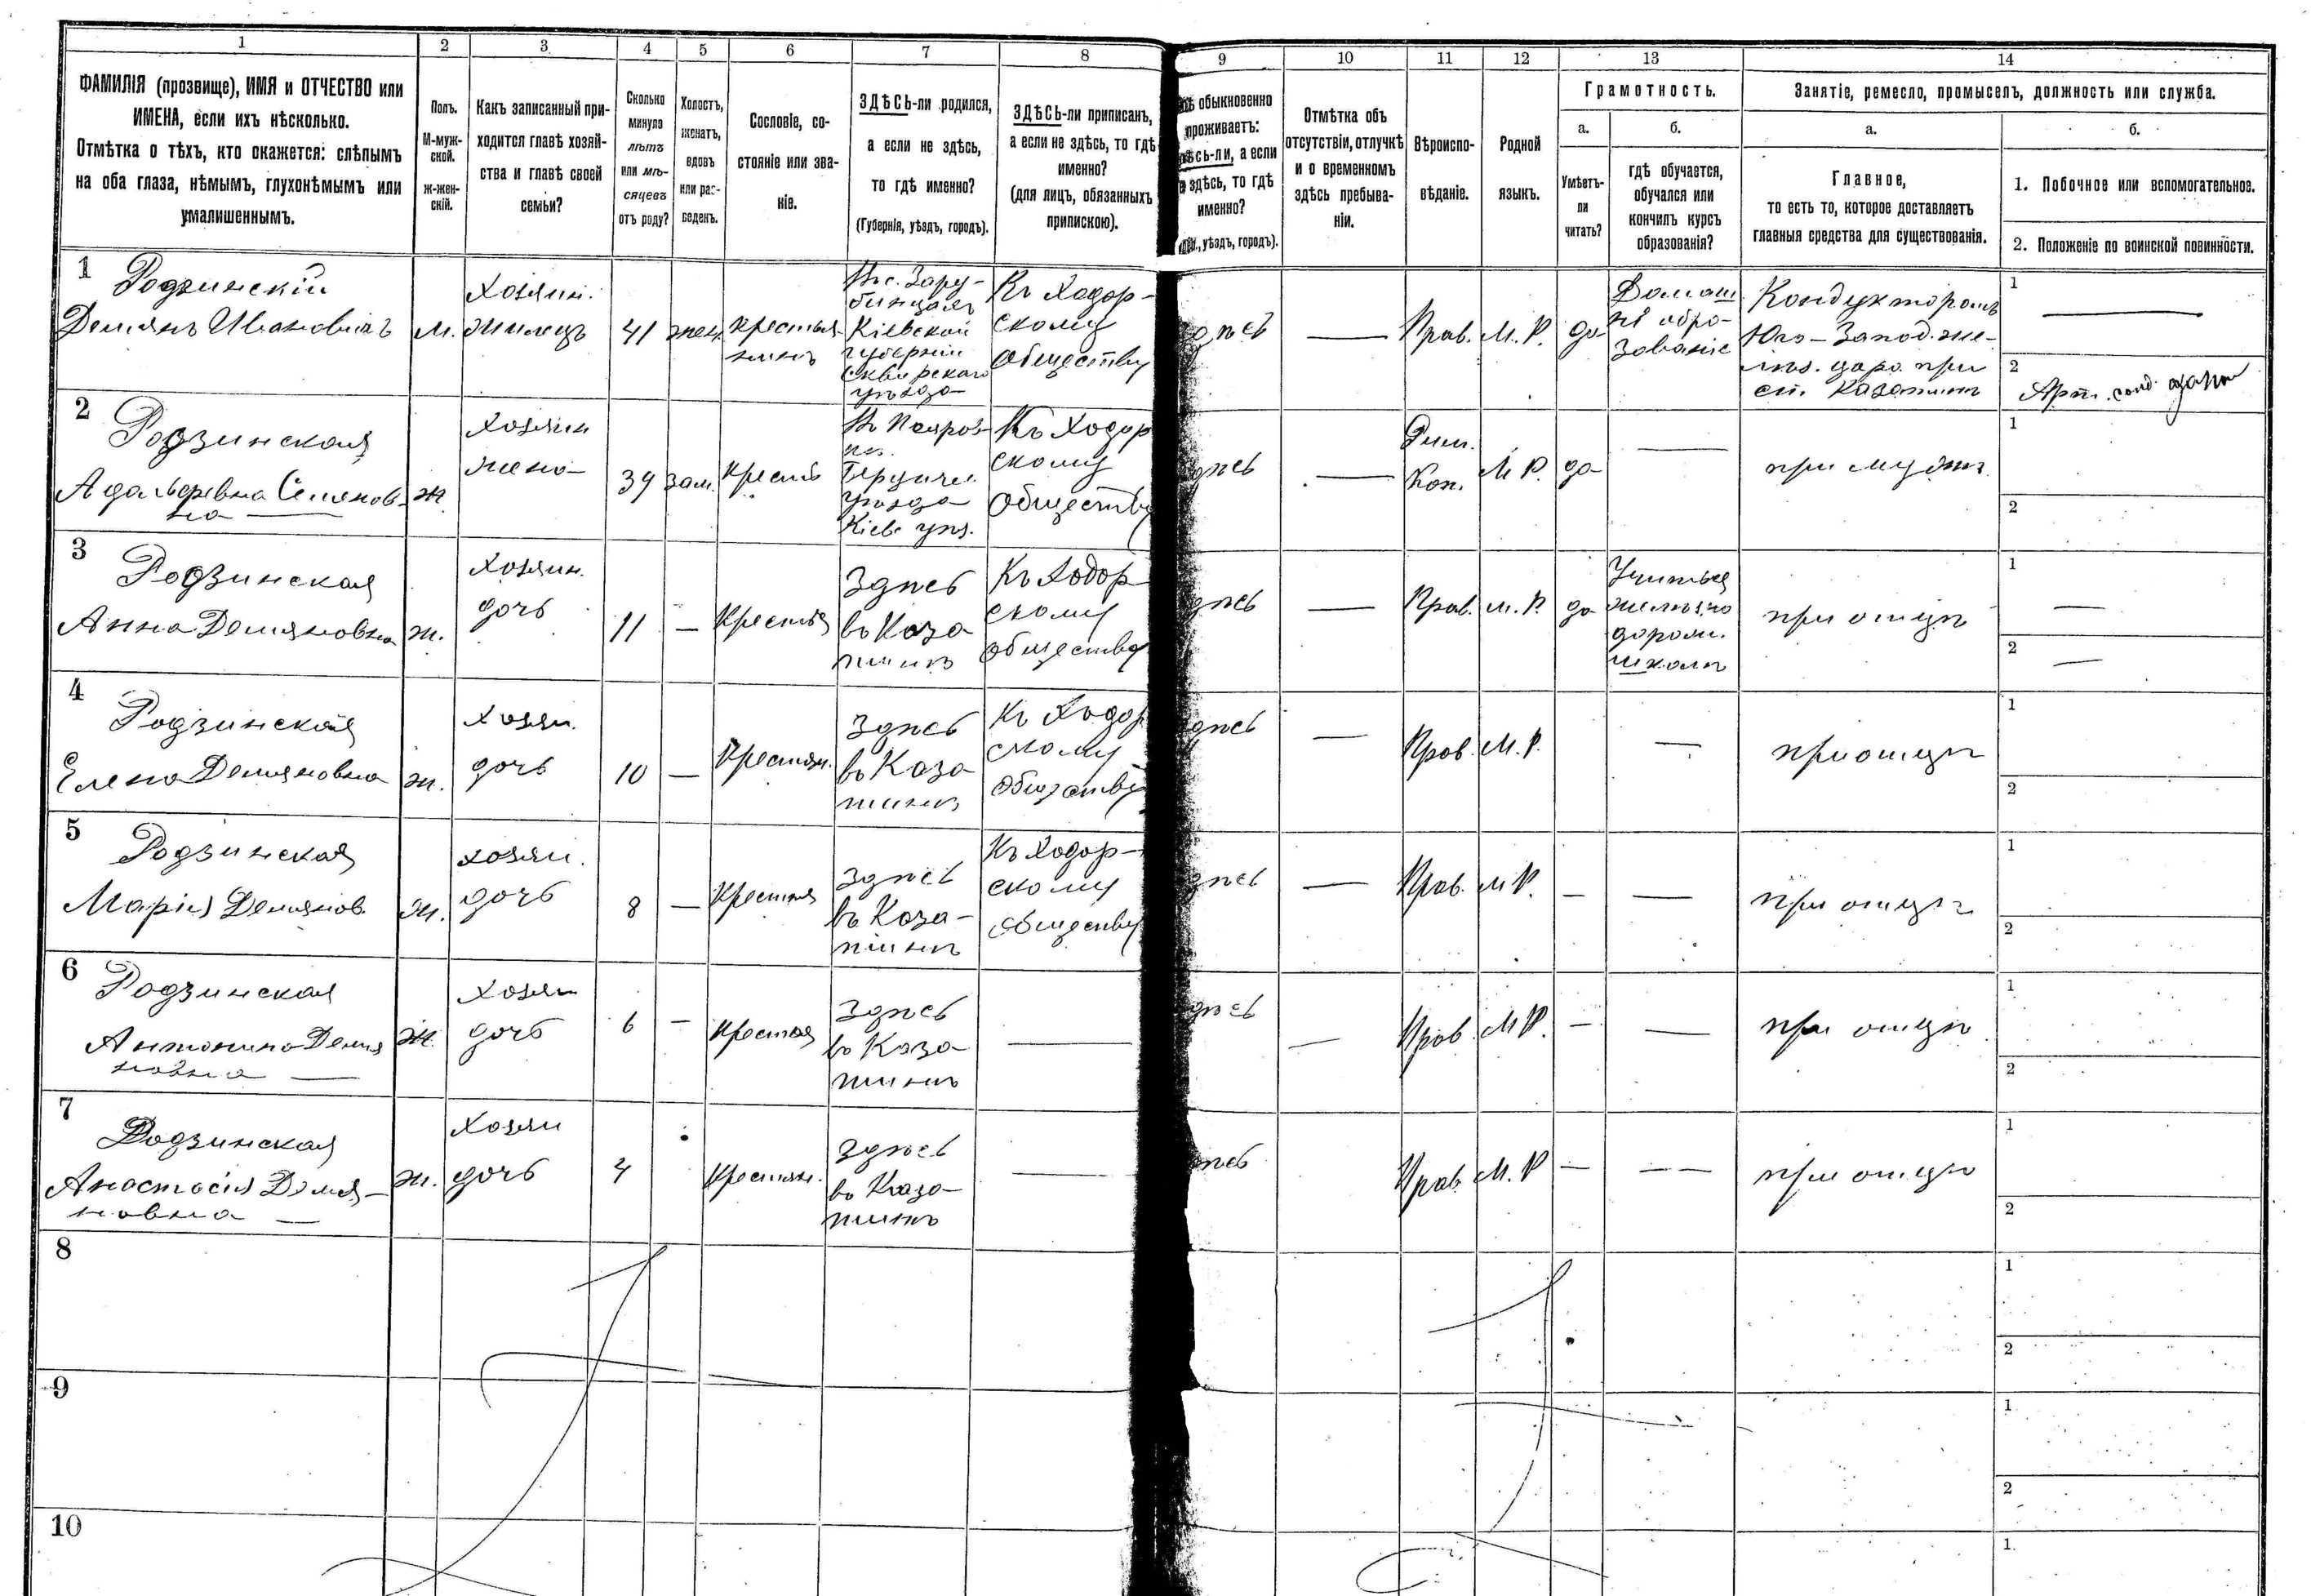 1 2 3 4 5 6 7 8 9 10 11 12 13 14
ФАМИЛІЯ (прозвище), ИМЯ и ОТЧЕСТВО или
ИМЕНА, если ихъ нѣсколько.
Отмѣтка о тѣхъ, кто окажется: слѣпымъ
на оба глаза, нѣмымъ, глухонѣмымъ или
умалишеннымъ.
Полъ.
М-муж-
ской.
ж-жен-
скій.
Какъ записанный при-
ходится главѣ хозяй-
ства и главѣ своей
семьи?
Сколько
минуло
лѣтъ
или мѣ-
сяцевъ
отъ роду?
Холостъ,
женатъ,
вдовъ
или раз-
веденъ.
Сословіе, со-
стояніе или зва-
ніе.
ЗДѢСЬ-ли родился,
а если не здѣсь,
то гдѣ именно?
(Губернія, уѣздъ, городъ).
ЗДѢСЬ-ли приписанъ,
а если не здѣсь, то гдѣ
именно?
(для лицъ, обязанныхъ
припискою).
обыкновенно
проживаетъ:
а если
здѣсь, то гдѣ
именно?
уѣздъ, городъ).
Отмѣтка объ
отсутствіи, отлучкѣ
и о временномъ
здѣсь пребыва-
ніи.
Вѣроиспо-
вѣданіе.
Родной
языкъ.
Грамотность.
а.
Умѣетъ-
ли
читать?
б.
гдѣ обучается,
обучался или
кончилъ курсъ
образованія?
Занятіе, ремесло, промыселъ, должность или служба.
а.
Главное,
то есть то, которое доставляетъ
главныя средства для существованія.
б.
1. Побочное или вспомогательное.
2. Положеніе по воинской повинности.
1
Родзинскій
Демянъ Ивановичъ
м.
Хозяин.
жилецъ
41
жен.
крестья
нинъ
Зару-
бинцахъ
Кіевской
губерніи
Сквирскаго
уѣзда
Къ Ходор-
скому
обществу
—
Прав.
М. Р.
да
Домаш
образо-
зованіе
Кондукторомъ
Юго-Запад. же-
при
ст. Казатинъ
1 —
2
2
Родзинская
Семенов-
на —
ж
Хозяин
жена
39
зам.
крест
уѣзда
Кіев
Къ Ходор
скому
обществу
—
Рим.
Кат.
М. Р.
да
—
при мужѣ
1
2
3
Родзинская
Анна Демяновна
ж.
Хозяин.
дочь
11
—
Крестья
Здѣсь
въ Каза
тинѣ
Къ Ходор
скому
обществу
—
Прав.
М. Р.
да
желѣзно
дорож.
школѣ
при отцѣ
1 —
2 —
4
Родзинская
Елена Демяновна
ж.
Хозяи.
дочь
10
—
Крестьян.
Здѣсь
въ Каза
тинѣ
Къ Ходор
скому
обществу
—
Прав.
М. Р.
—
при отцѣ
1
2
5
Родзинская
Марія Демянов.
ж.
хозяи.
дочь
8
—
Крестья
Здѣсь
въ Каза-
тинѣ
Къ Ходор-
скому
обществу
—
Прав.
М. Р.
—
—
при отцѣ
1
2
6
Родзинская
Антонина Демя
новна —
ж.
Хозяи
дочь
6
—
Крестья
Здѣсь
въ Каза-
тинѣ
—
—
Прав.
М. Р.
—
—
при отцѣ
1
2
7
Родзинская
Анастасія Демя-
новна —
ж.
Хозяи
дочь
4
Крестьян.
Здѣсь
въ Каза-
тинѣ
—
Прав.
М. Р
—
— —
при отцѣ
1
2
8
1
2
9
1
2
10
1